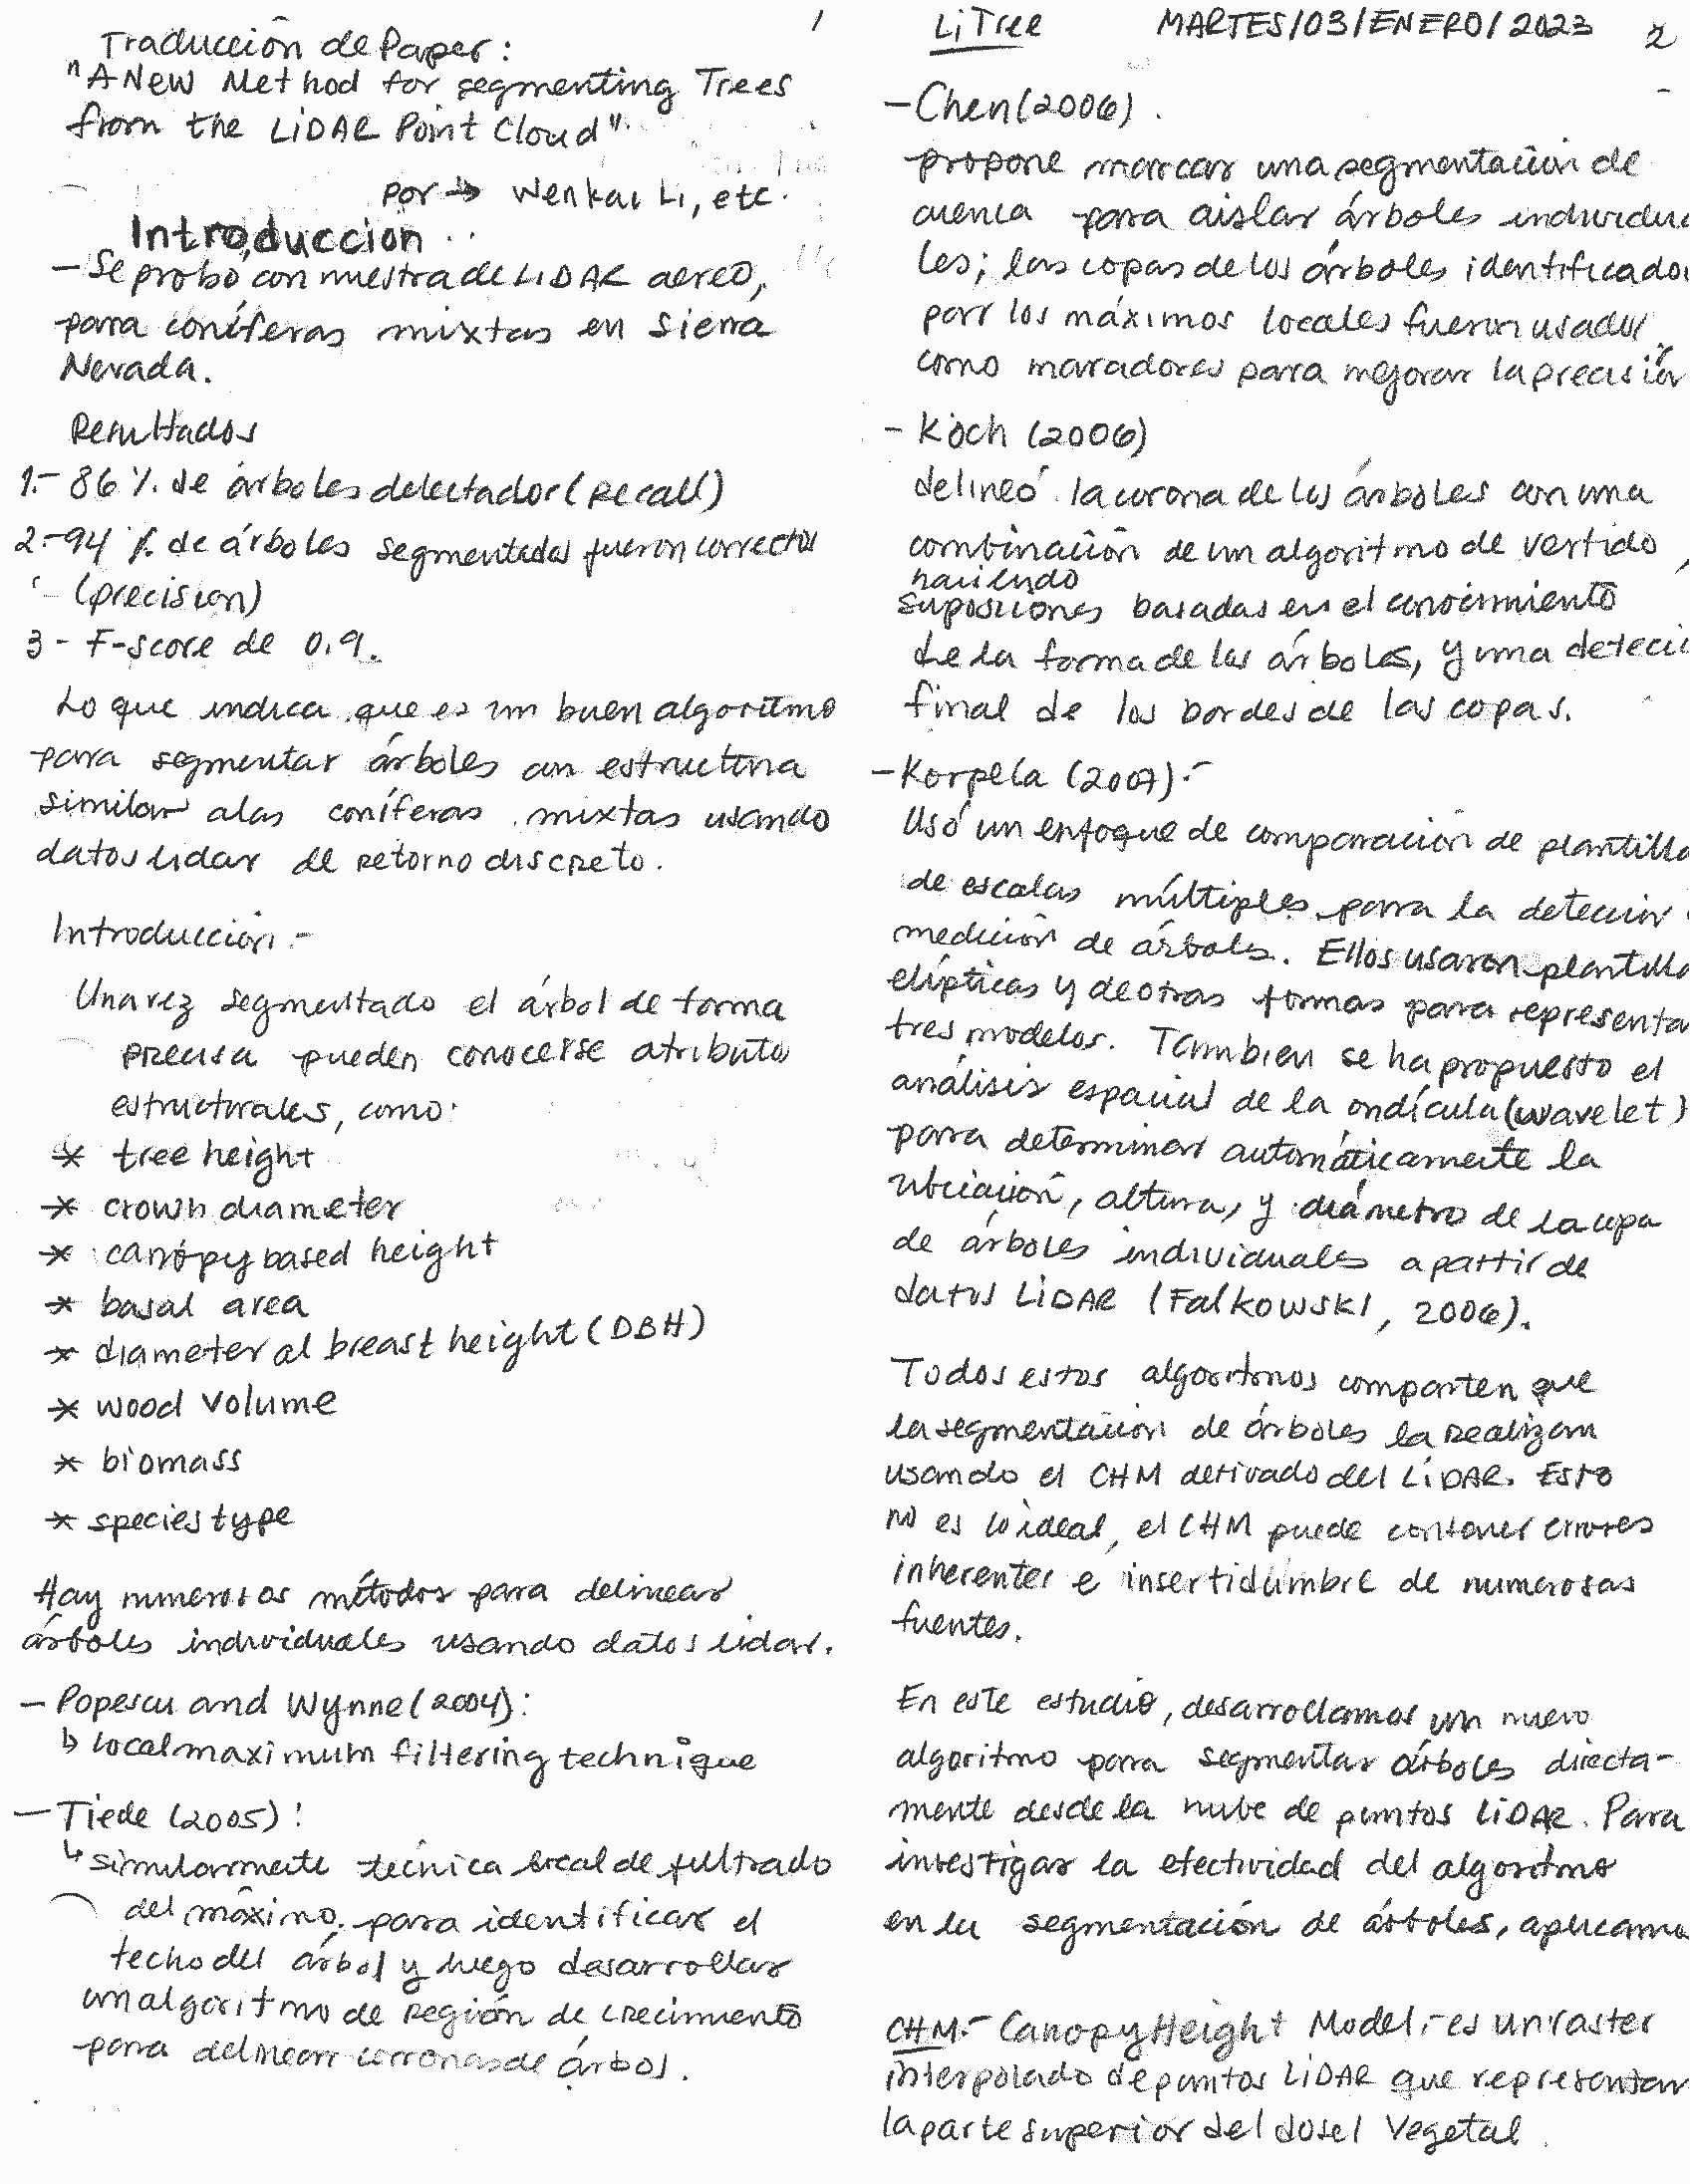 1
Traducción de Paper:
"A New Method for segmenting Trees
from the LiDAR Point Cloud".
por → Wenkai Li, etc.
Introduccion
- Se probó con muestra de LiDAR aereo,
para coníferas mixtas en Sierra
Nevada.
Resultados
1.- 86 % de árboles delectados (Recall)
2.- 94 % de árboles segmentados fueron correctos
(precision)
3 - F-score de 0.9.
Lo que indica que es un buen algoritmo
para segmentar árboles con estructura
similar a las coníferas mixtas usando
datos lidar de retorno discreto.
Introducción.-
Una vez segmentado el árbol de forma
precisa pueden conocerse atributos
estructurales, como:
* tree height
* crown diameter
* canopy based height
* basal area
* diameter al breast height (DBH)
* wood volume
* biomass
* species type
Hay numerosos métodos para delinear
árboles individuales usando datos lidar.
- Popescu and Wynne (2004):
↳ local maximum filtering technique
- Tiede (2005):
↳ similarmente técnica local de filtrado
del máximo. para identificar el
techo del árbol y luego desarrollar
un algoritmo de región de crecimiento
para delinear corronas de árbol.
LiTree MARTES/03/ENERO/2023 2
- Chen (2006).
propone marcar una segmentación de
cuenca para aislar árboles individua
les; las copas de los árboles identificados
por los máximos locales fueron usados
como marcadores para mejorar la precisión
- Koch (2006)
delineó la corona de los árboles con una
combinación de un algoritmo de vertido,
haciendo
suposiciones basadas en el conocimiento
de la forma de los árboles, y una detecci
final de los bordes de las copas.
- Korpela (2007).-
Usó un enfoque de comparación de plantilla
de escalas múltiples para la detección
medición de árboles. Ellos usaron plantilla
elípticas y de otras formas para representa
tres modelos. Tambien se ha propuesto el
análisis espacial de la ondícula (wavelet)
para determinar automáticamente la
ubicación, altura, y diámetro de la copa
de árboles individuales a partir de
datos LiDAR (Falkowski, 2006).
Todos estos algoritmos comparten que
la segmentación de árboles la realizan
usando el CHM derivado del LiDAR. Esto
no es lo ideal, el CHM puede contener errores
inherentes e insertidumbre de numerosas
fuentes.
En este estudio, desarrollamos un nuevo
algoritmo para segmentar árboles directa-
mente desde la nube de puntos LiDAR. Para
investigar la efectividad del algoritmo
en la segmentación de árboles, aplicamo
CHM.- Canopy Height Model.- es un raster
interpolado de puntos LiDAR que representan
la parte superior del dosel vegetal.